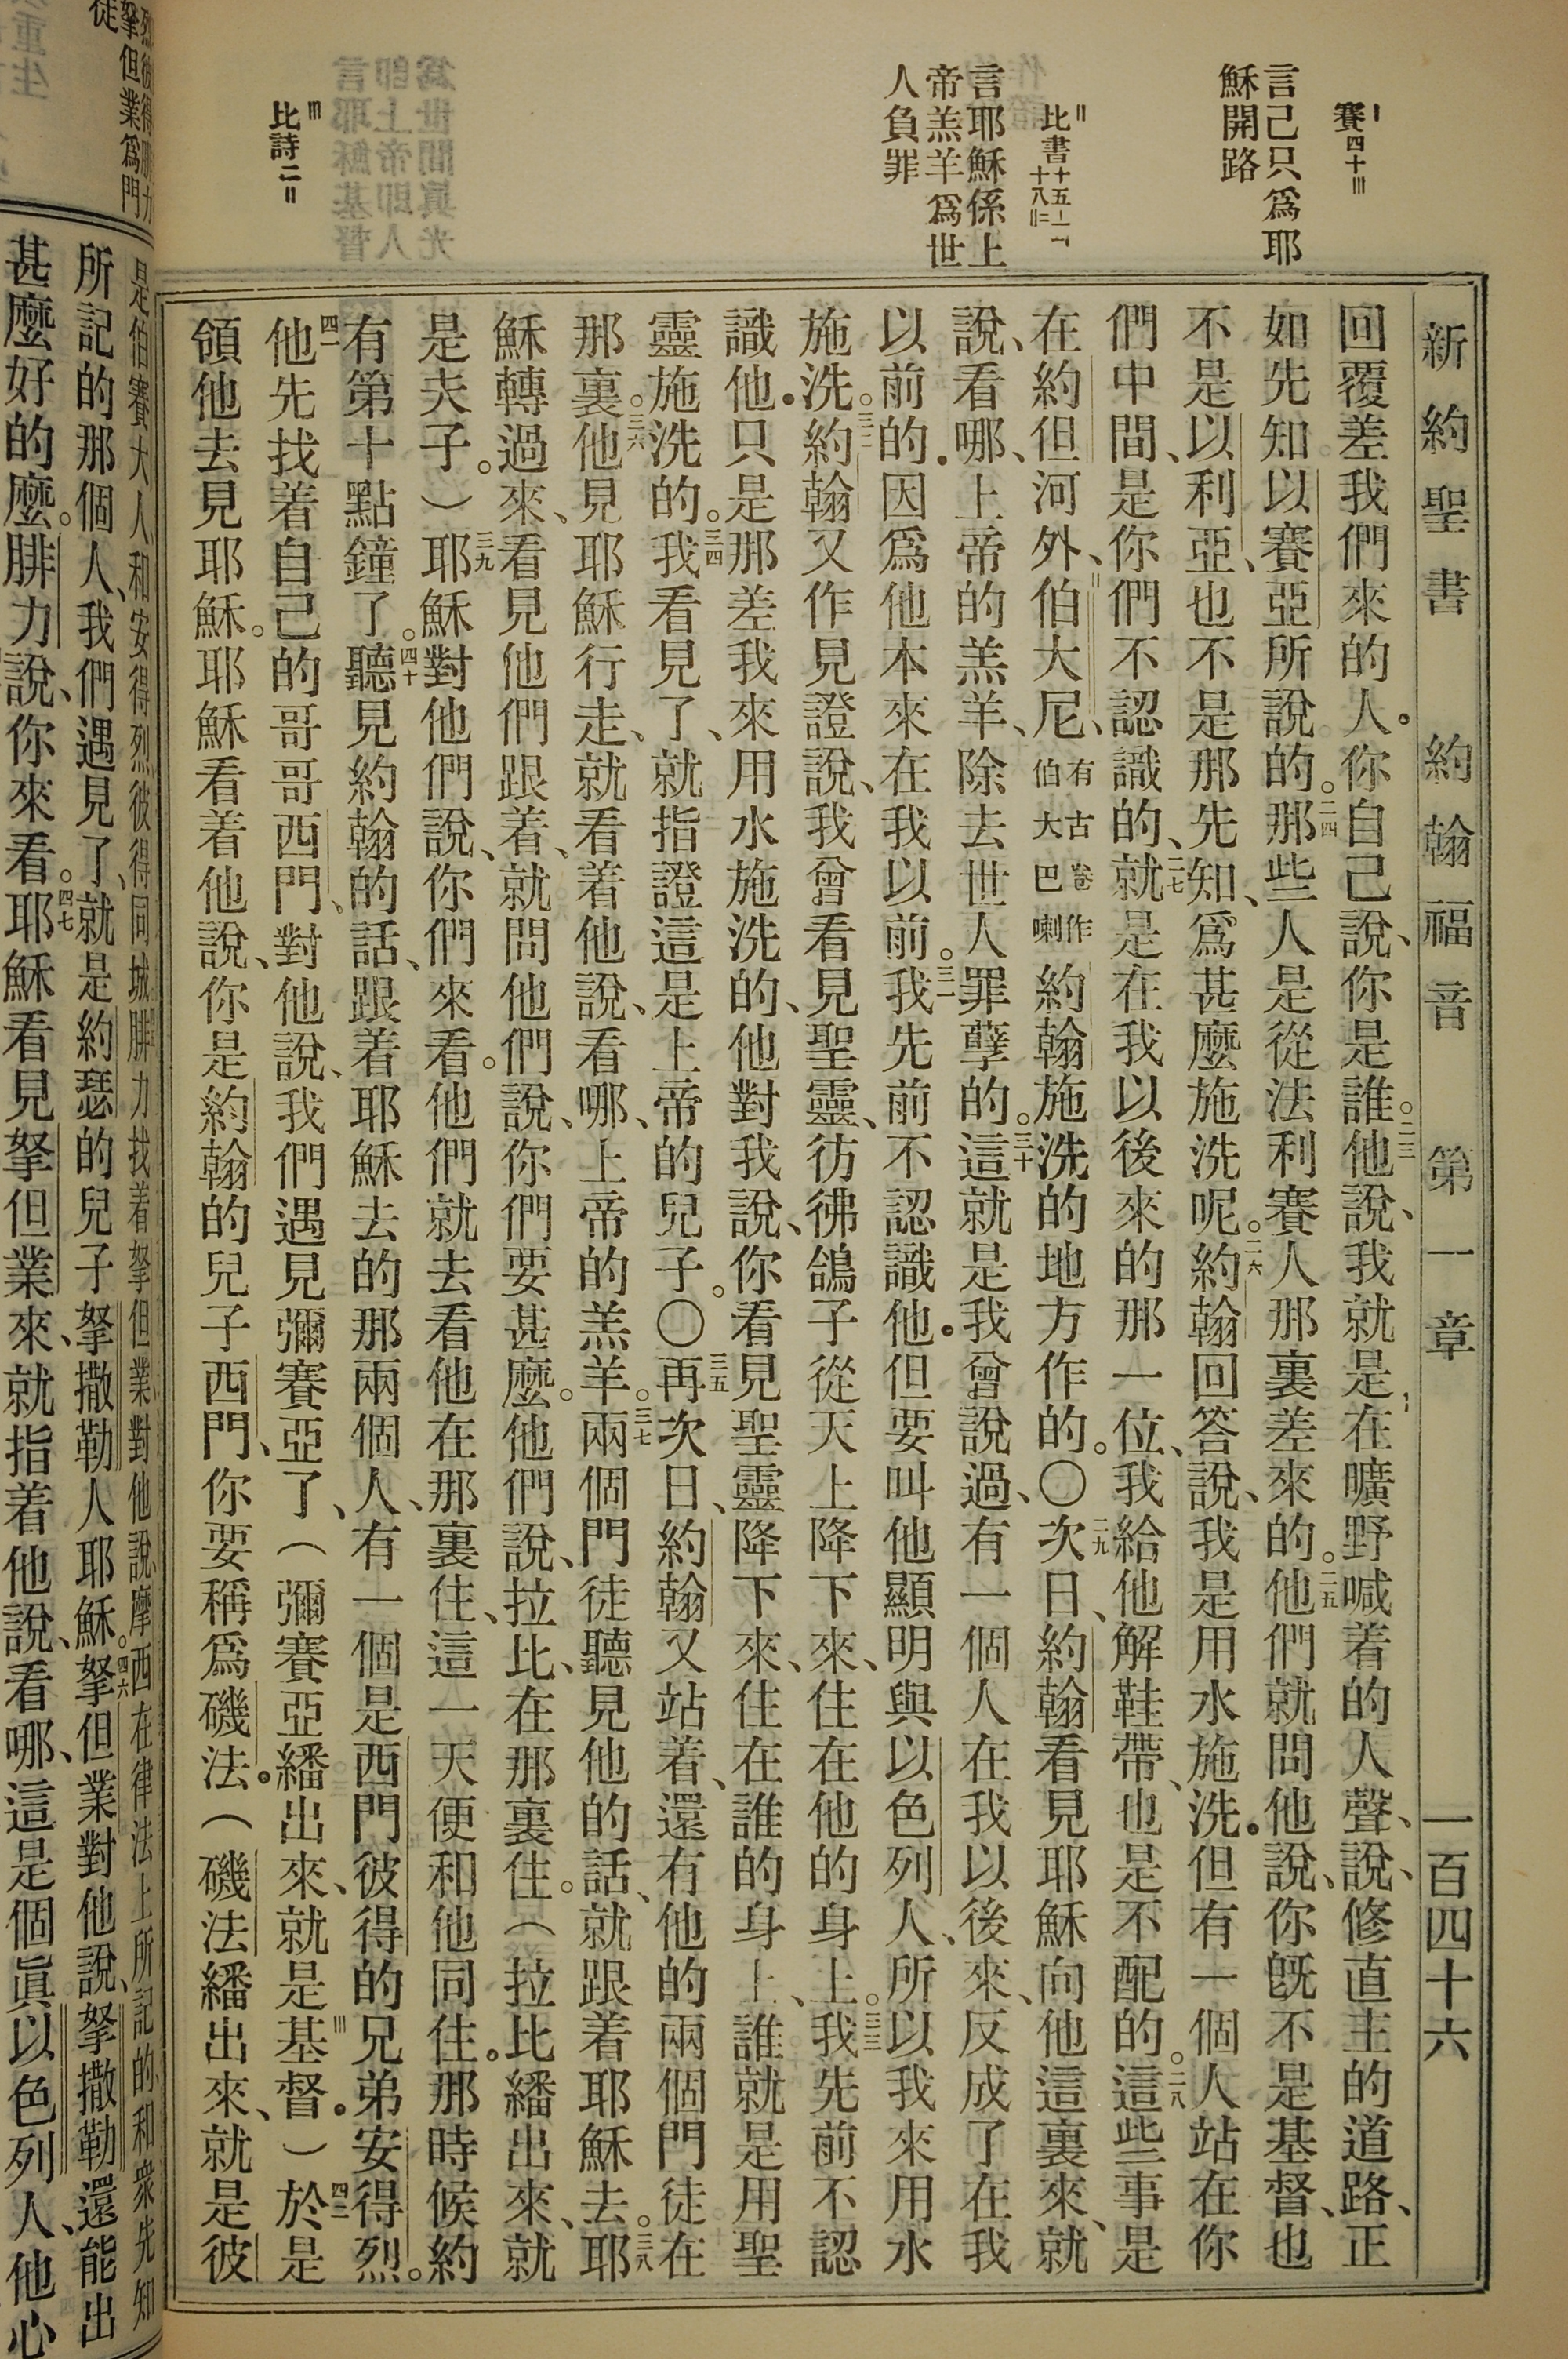 新約聖書 約翰福音 第一章 一百四十六
賽四十三
言己只爲耶
穌開路
比書十五二一
十八二二
言耶穌係上
帝羔羊爲世
人負罪
比詩二二
回覆差我們來的人．你自己說、你是誰。二三他說、我就是在曠野喊着的人聲、說、修直主的道路、正
如先知以賽亞所說的。二四那些人是從法利賽人那裏差來的。二五他們就問他說、你旣不是基督、也
不是以利亞、也不是那先知、爲甚麼施洗呢。二六約翰回答說、我是用水施洗．但有一個人站在你
們中間、是你們不認識的、二七就是在我以後來的那一位、我給他解鞋帶、也是不配的。二八這些事是
在約但河外、伯大尼、有古卷作伯大巴喇約翰施洗的地方作的。〇二九次日、約翰看見耶穌向他這裏來、就
說、看哪、上帝的羔羊、除去世人罪孽的。三十這就是我曾說過、有一個人在我以後來、反成了在我
以前的．因爲他本來在我以前。三一我先前不認識他．但要叫他顯明與以色列人、所以我來用水
施洗。三二約翰又作見證說、我曾看見聖靈、彷彿鴿子從天上降下來、住在他的身上。三三我先前不認
識他．只是那差我來用水施洗的、他對我說、你看見聖靈降下來、住在誰的身上、誰就是用聖
靈施洗的。三四我看見了、就指證這是上帝的兒子。〇三五再次日、約翰又站着、還有他的兩個門徒在
那裏。三六他見耶穌行走、就看着他說、看哪、上帝的羔羊。三七兩個門徒聽見他的話、就跟着耶穌去。三八耶
穌轉過來、看見他們跟着、就問他們說、你們要甚麼。他們說、拉比、在那裏住。（拉比繙出來、就
是夫子。）三九耶穌對他們說、你們來看。他們就去看他在那裏住、這一天便和他同住．那時候約
有第十點鐘了。四十聽見約翰的話、跟着耶穌去的那兩個人、有一個是西門彼得的兄弟安得烈。
四一他先找着自己的哥哥西門、對他說、我們遇見彌賽亞了、（彌賽亞繙出來、就是基督．）四二於是
領他去見耶穌。耶穌看着他說、你是約翰的兒子西門、你要稱爲磯法．（磯法繙出來、就是彼
是伯賽大人和安得烈彼得同城腓力找着拏但業對他說、摩西在律法上所記的、和衆先知
所記的那個人、我們遇見了、就是約瑟的兒子拏撒勒人耶穌。四六拏但業對他說、拏撒勒還能出
甚麼好的麼。腓力說、你來看。四七耶穌看見拏但業來、就指着他說、看哪、這是個眞以色列人、他心